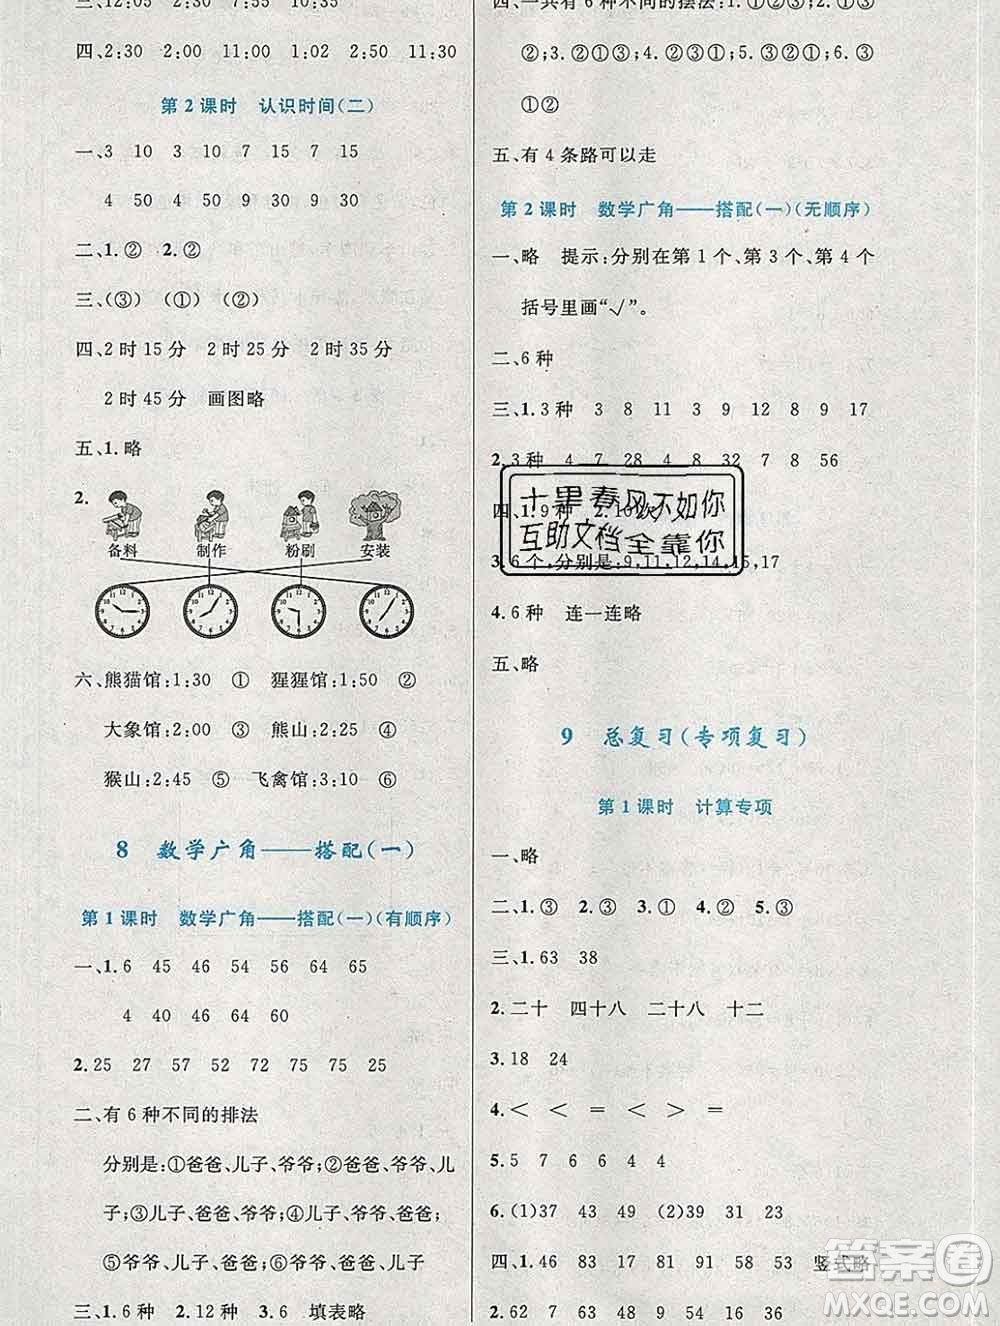 三、12:05 12:10 2:55 7:55
四、2:30 2:00 11:00 1:02 2:50 11:30
第2课时 认识时间(二)
一、3 10 3 10 7 15 7 15
4 50 4 50 9 30 9 30
二、1.② 2.②
三、(③) (①) (②)
四、2时15分 2时25分 2时35分
2时45分 画图略
五、1.略
2.
备料 制作 粉刷 安装
六、熊猫馆:1:30 ① 猩猩馆:1:50 ②
大象馆:2:00 ③ 熊山:2:25 ④
猴山:2:45 ⑤ 飞禽馆:3:10 ⑥
8 数学广角——搭配(一)
第1课时 数学广角——搭配(一)(有顺序)
一、1.6 45 46 54 56 64 65
4 40 46 60 64
2.25 27 57 52 72 75 75 25
二、有6种不同的排法
分别是:①爸爸、儿子、爷爷;②爸爸、爷爷、儿
子;③儿子、爸爸、爷爷;④儿子、爷爷、爸爸;
⑤爷爷、儿子、爸爸;⑥爷爷、爸爸、儿子
三、1.6种 2.12种 3.6 填表略
四、一共有6种不同的摆法:1.①②③;2.①③
②;3.②①③;4.②③①;5.③②①;6.③
①②
五、有4条路可以走
第2课时 数学广角——搭配(一)(无顺序)
一、略 提示:分别在第1个、第3个、第4个
括号里画“√”。
二、6种
三、1.3种 3 8 11 3 9 12 8 9 17
2.3种 4 7 28 4 8 32 7 8 56
四、1.9种 2.10次
3.6个,分别是:9,11,12,14,15,17
4.6种 连一连略
五、略
十里春风不如你
互助文档全靠你
9 总复习(专项复习)
第1课时 计算专项
一、略
二、1.③ 2.③ 3.① 4.② 5.③
三、1.63 38
2.二十 四十八 二十八 十二
3.18 24
4.< < = < > =
5.5 7 6 8 4 4
6.(1)37 43 49 (2)39 31 23
四、1.46 83 17 91 58 53 竖式略
2.62 7 68 9 54 9 16 36
答案圈
MXQE.COM